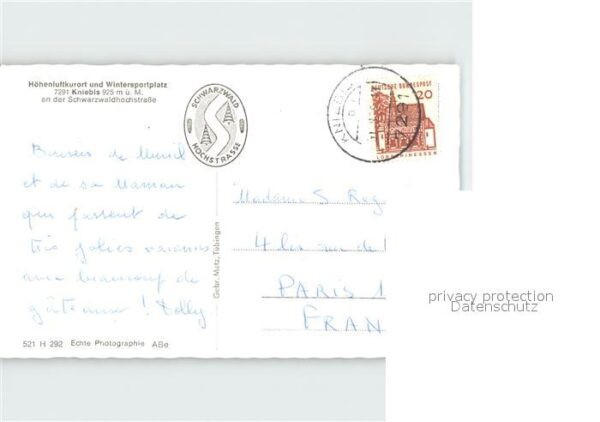 Höhenluftkurort und Wintersportplatz
7291 Kniebis 925 m ü. M.
an der Schwarzwaldhochstraße
SCHWARZWALD
HOCHSTRASSE
KNIEBIS
7291
DEUTSCHE BUNDESPOST
20
LORSCH HESSEN
Baisers de Muriel
et de sa Maman
qui passent de
très jolies vacances
avec beaucoup de
gâteaux ! Dolly
Gebr. Metz, Tübingen
Madame S. Rog
4 bis rue de
PARIS 1
FRAN
521 H 292 Echte Photographie ABe
privacy protection
Datenschutz